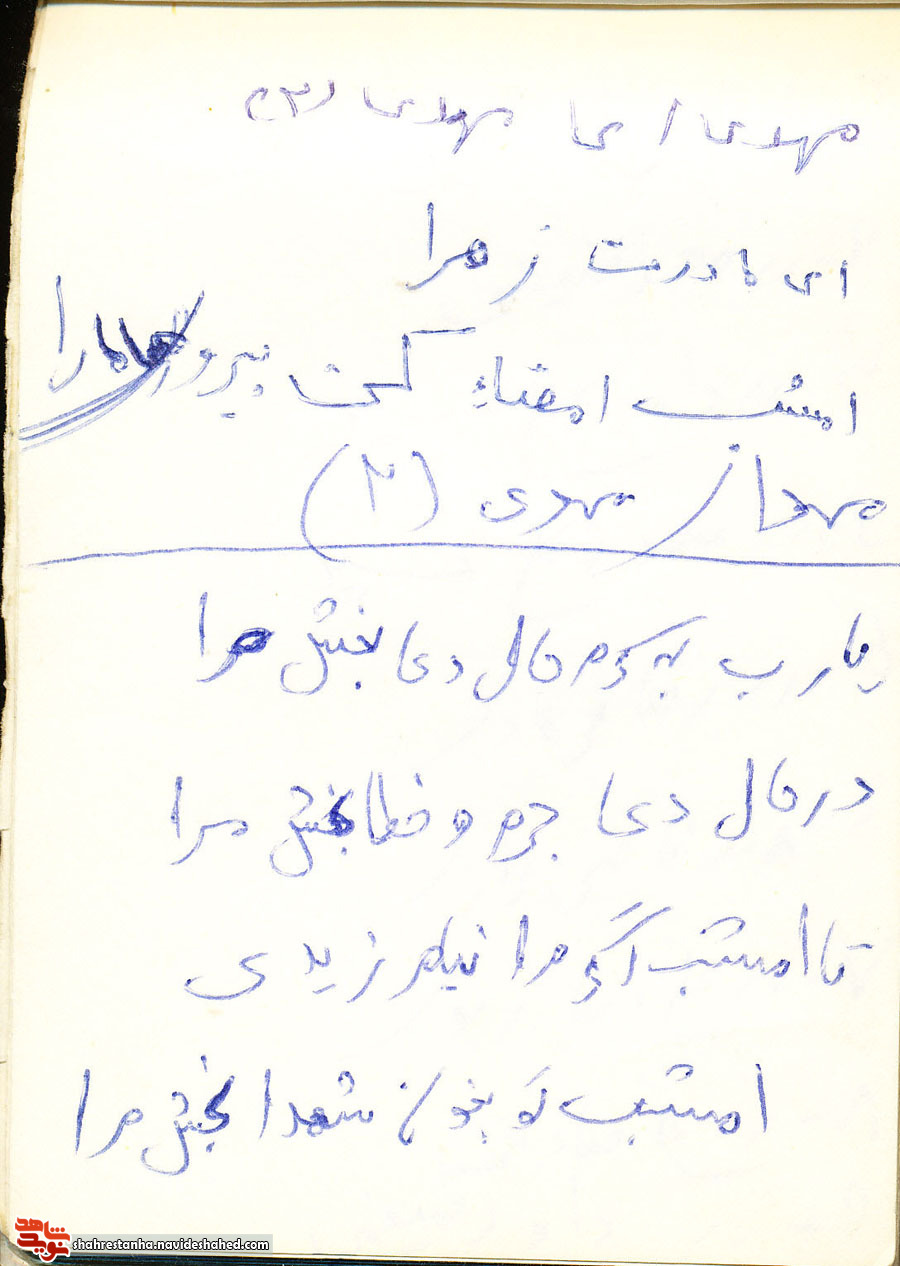 مهدی ای مهدی (۳)
ای مادرت زهرا
امشب امضاء کن پیروزی ما را
مهدی مهدی (۲)
یارب به کرم حال دعا بخش مرا
در حال دعا جرم و خطا بخش مرا
تا امشب اگر مرا نیامرزیدی
امشب تو بخون شهدا بخش مرا
شاهد
نوید
shahrestanha.navideshahed.com